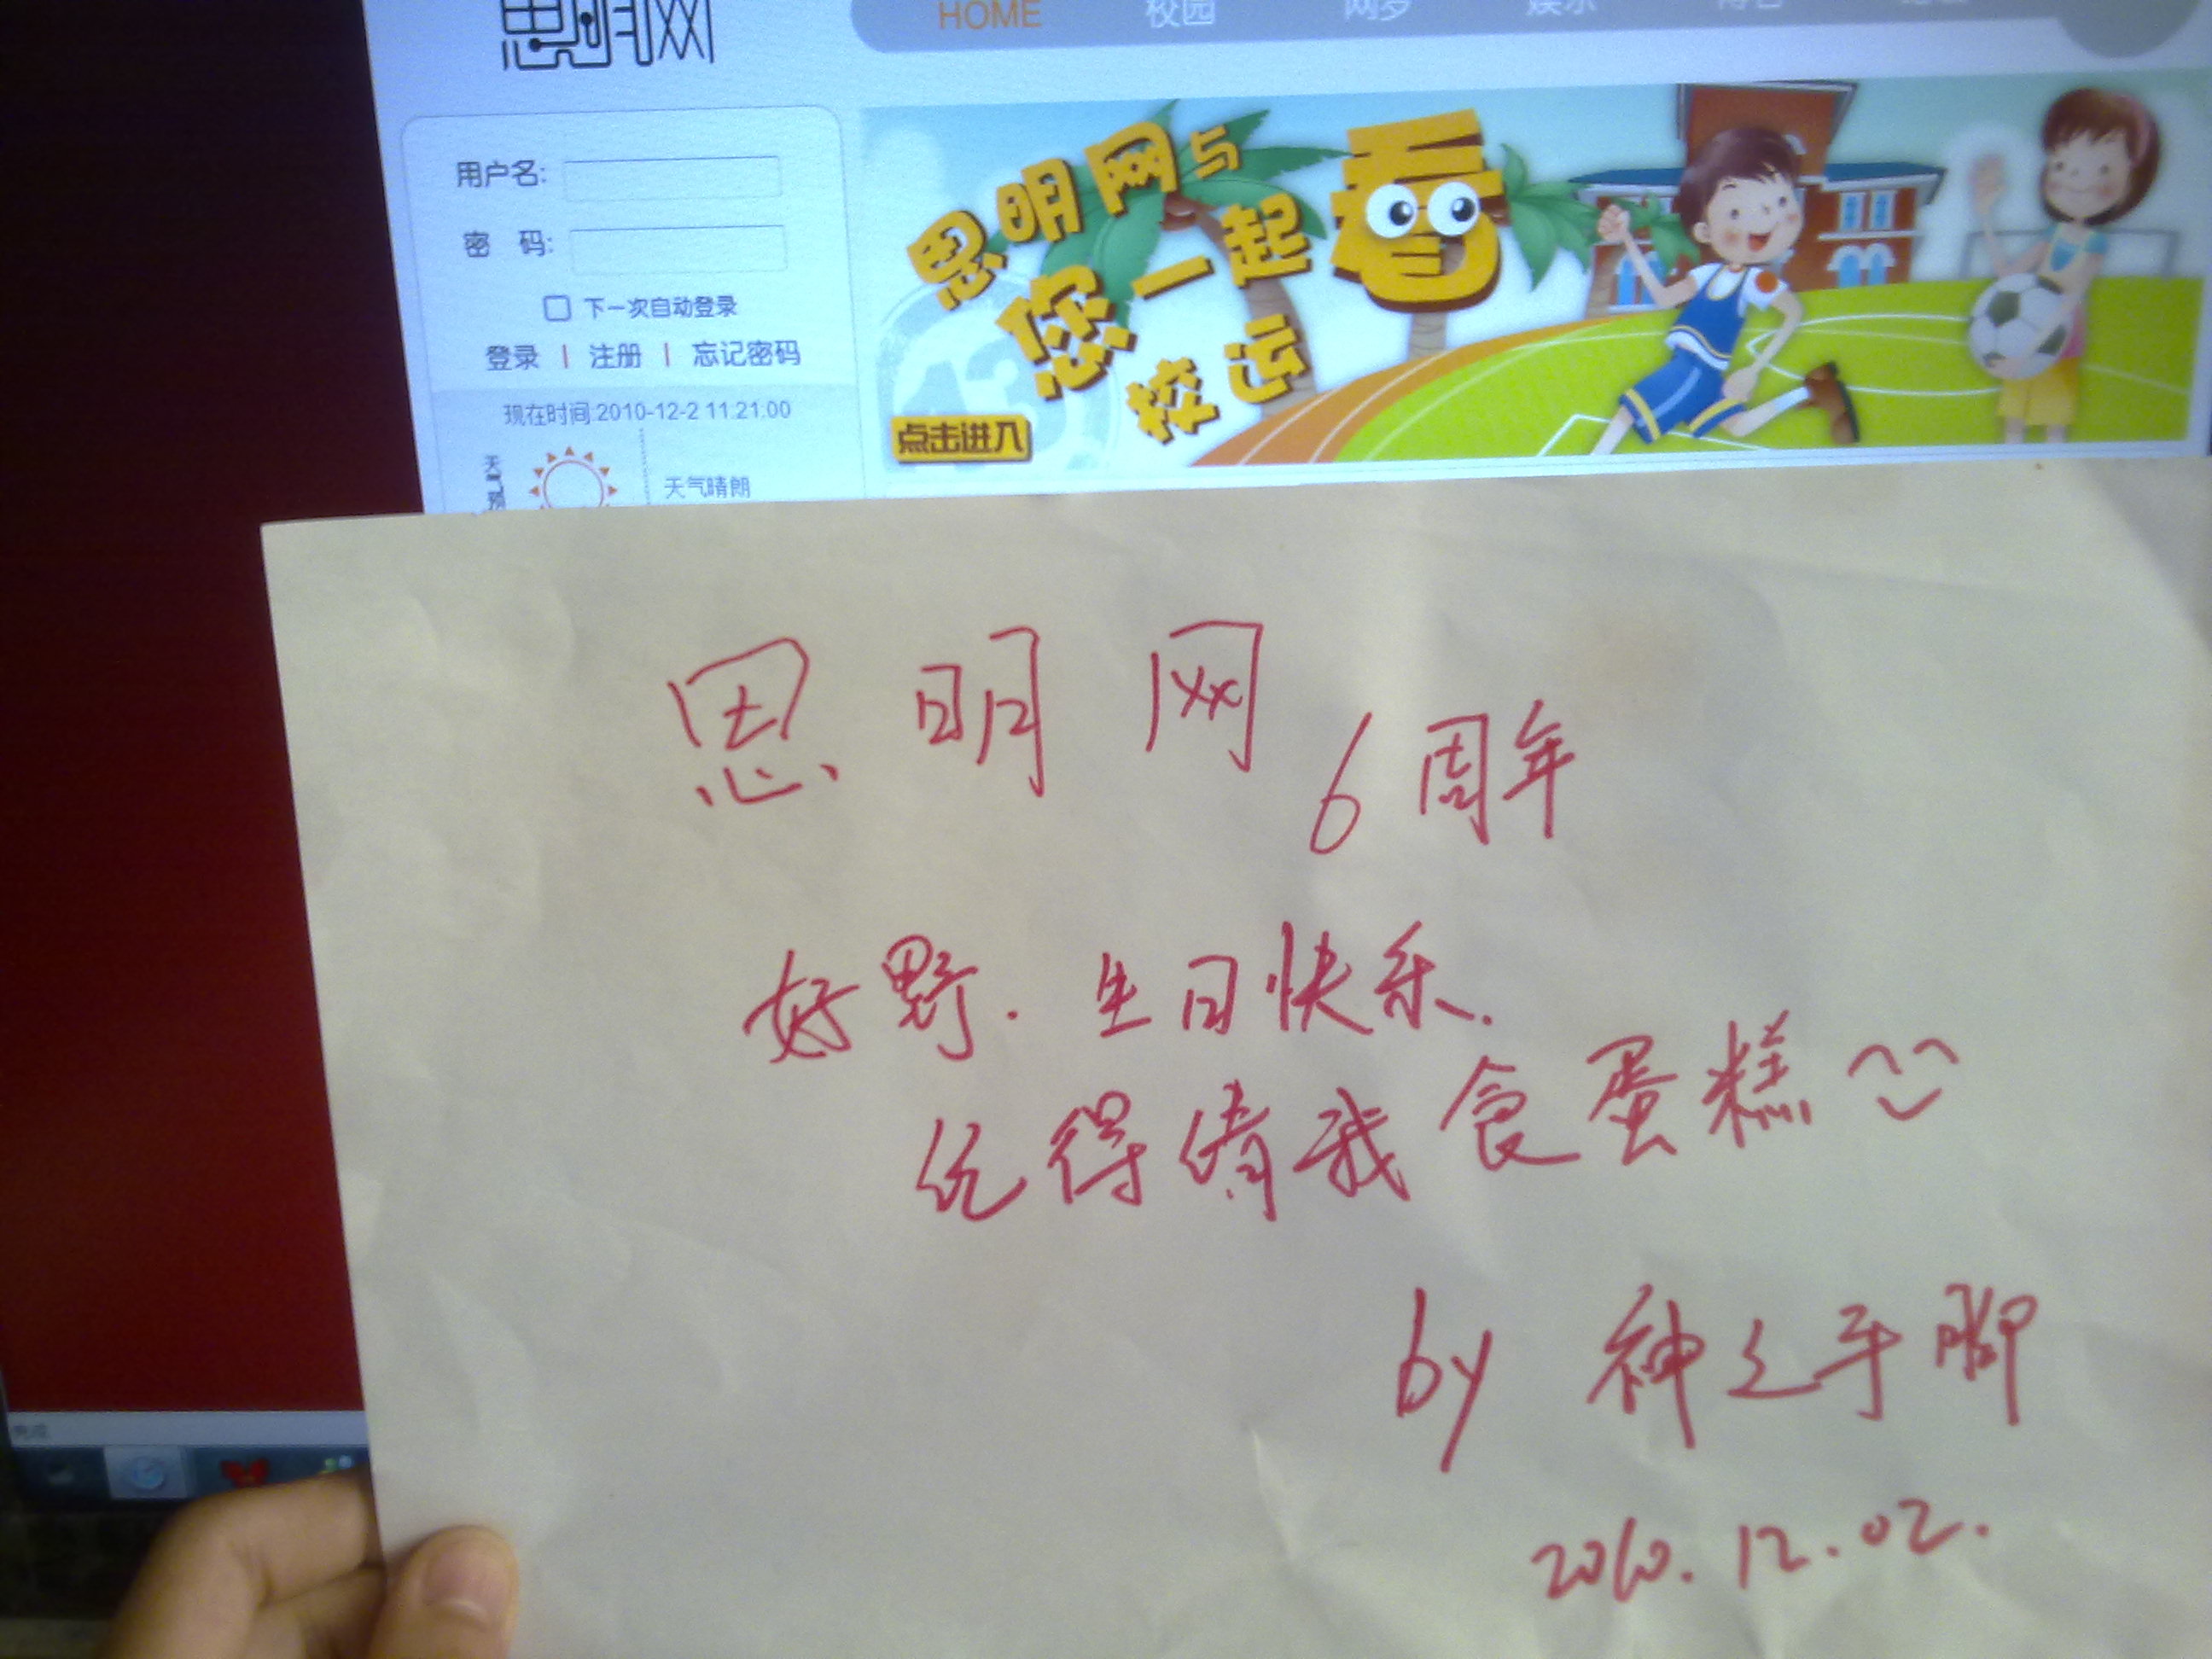 思明网
HOME 校园 娱乐
用户名:
密 码:
下一次自动登录
登录 | 注册 | 忘记密码
现在时间:2010-12-2 11:21:00
天气预
天气晴朗
思明网与
您一起看
校运
点击进入
思明网
6周年
好野.生日快乐.
记得请我食蛋糕
by 神之手脚
2010.12.02.